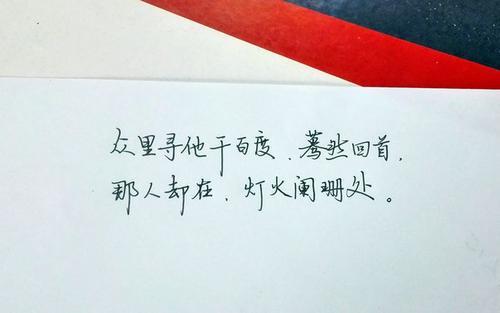 众里寻他千百度、蓦然回首，
那人却在，灯火阑珊处。